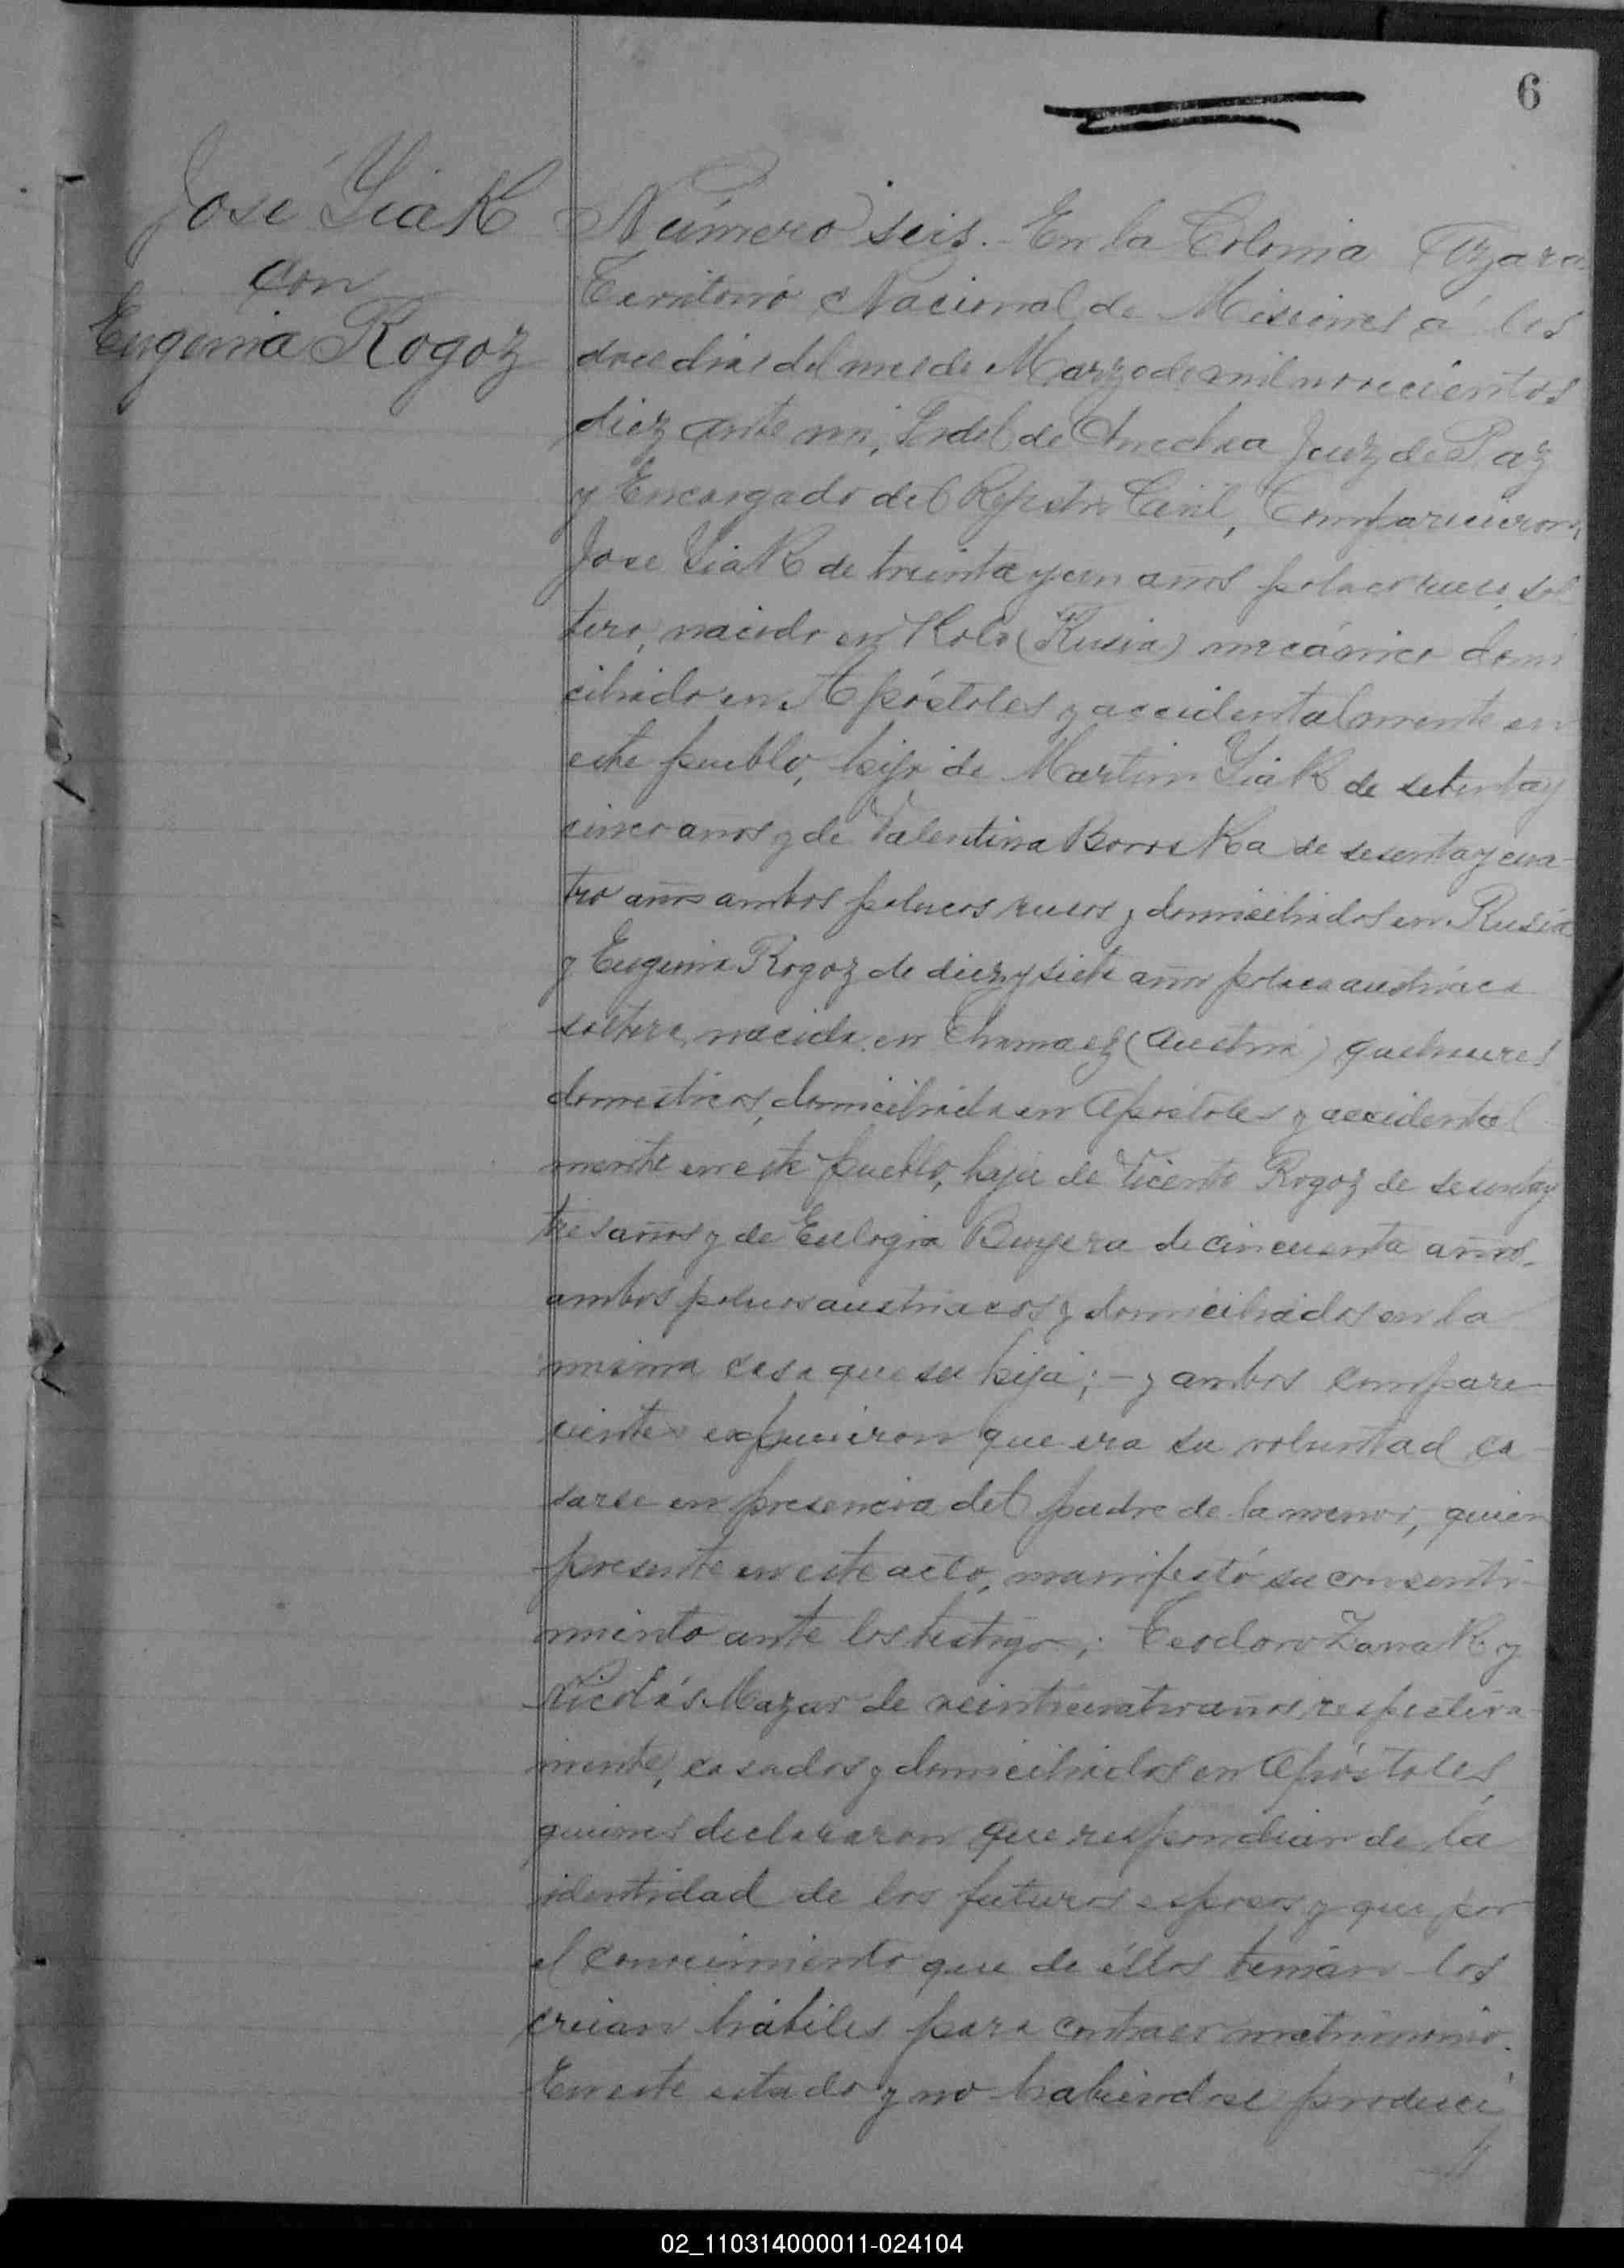 6
José Siak
con
Eugenia Rogoz
Número seis.- En la Colonia Azara
Territorio Nacional de Misiones á los
doce dias del mes de Marzo de mil novecientos
diez ante mi, Fidel de Juez de Paz
y Encargado del Registro Civil, Comparecieron,
Jose Siak de treinta y un años polaco ruso, sol
tero, nacido en Kolo (Rusia) mecánico domi
ciliado en Apóstoles y accidentalmente en
este pueblo, hijo de Martin Siak de setenta y
cinco años y de Valentina Boroska de sesenta y cua-
tro años ambos polacos rusos y domiciliados en Rusia
y Eugenia Rogoz de diez y siete años polaca austriaca
soltera, nacida en (Austria) quehaceres
domesticos, domiciliada en Apóstoles y accidental
mente en este pueblo, hija de Vicente Rogoz de sesenta y
tres años y de Eulogia de cincuenta años,
ambos polacos austriacos y domiciliados en la
misma casa que su hija;- y ambos compare-
cientes expusieron que era su voluntad ca-
sarse en presencia del padre de la menor, quien
presente en este acto, manifestó su consenti-
miento ante los testigos; Teodoro Zanak y
Nicolás Mazur de veinticuatro años respectiva-
mente, casados y domiciliados en Apóstoles,
quienes declararon que respondian de la
identidad de los futuros esposos y que por
el conocimiento que de éllos tenian los
creian hábiles para contraer matrimonio.
En este estado y no habiendose produci
02_110314000011-024104